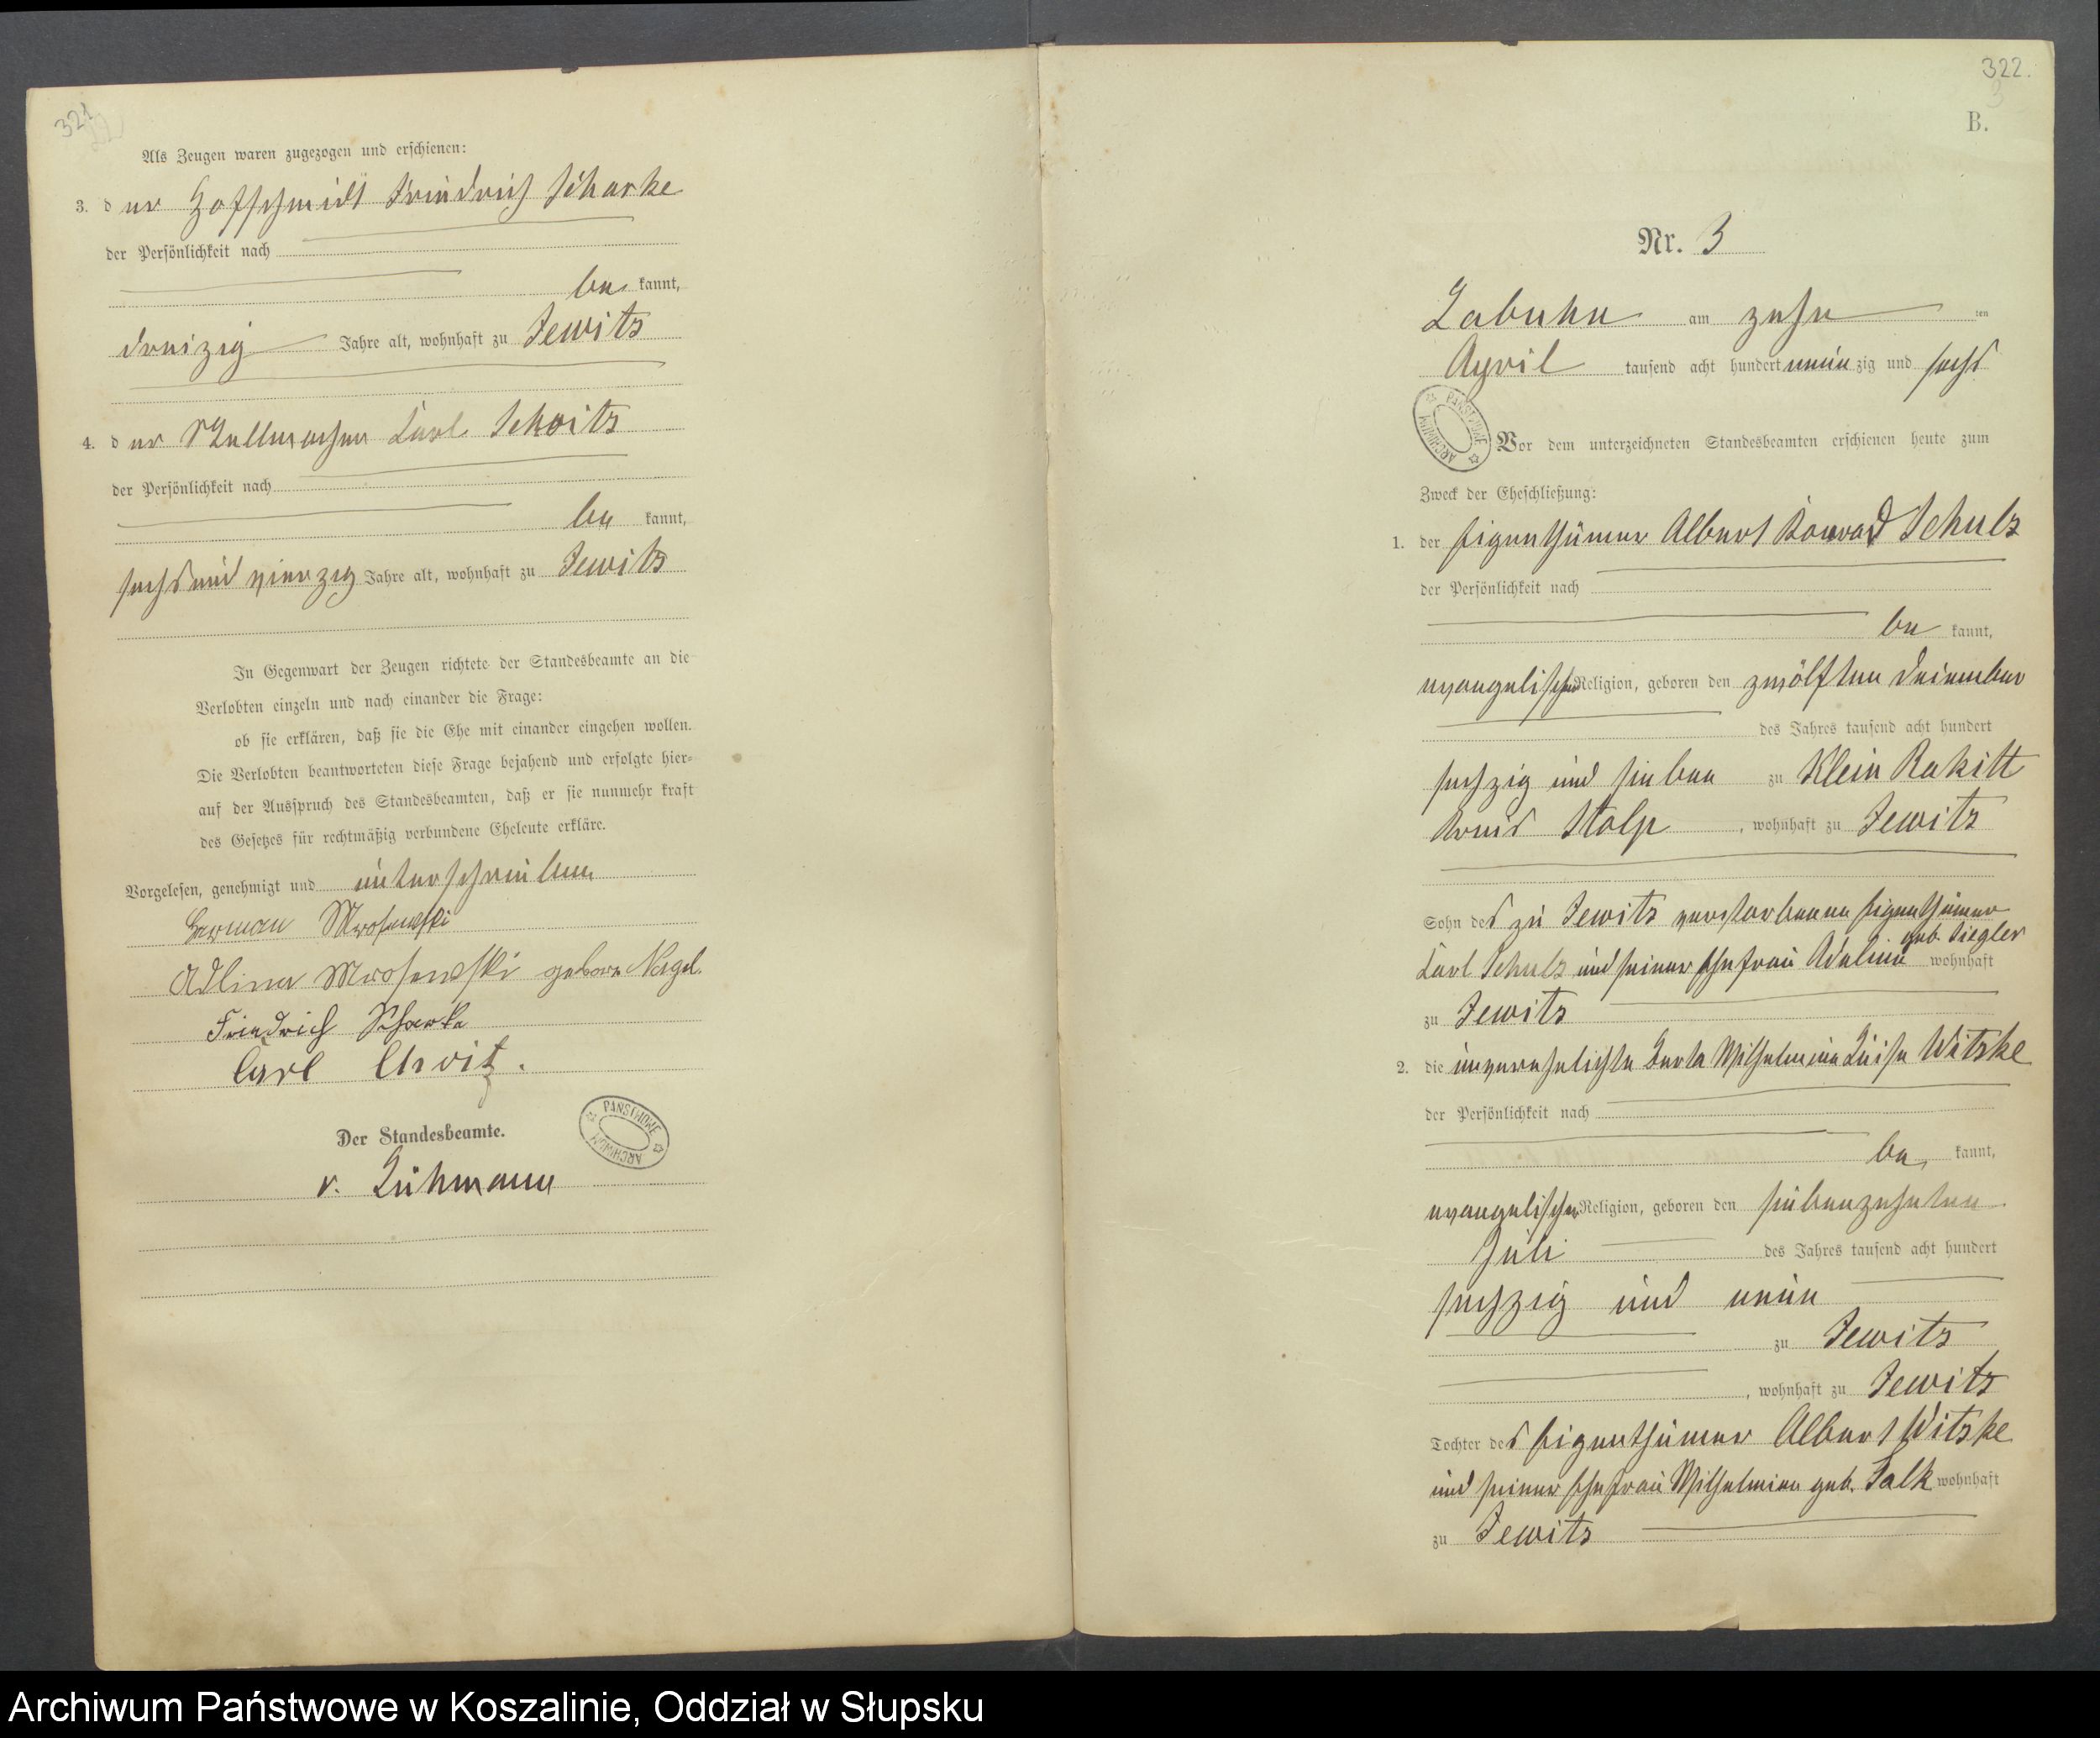 321
Als Zeugen waren zugezogen und erschienen:
3. der Hofschmidt Friedrich Scharke
der Persönlichkeit nach
be kannt,
dreizig Jahre alt, wohnhaft zu Jewitz
4. der Stellmacher Carl
der Persönlichkeit nach
be kannt,
sechs und vierzig Jahre alt, wohnhaft zu Jewitz
In Gegenwart der Zeugen richtete der Standesbeamte an die
Verlobten einzeln und nach einander die Frage:
ob sie erklären, daß sie die Ehe mit einander eingehen wollen.
Die Verlobten beantworteten diese Frage bejahend und erfolgte hier-
auf der Ausspruch des Standesbeamten, daß er sie nunmehr kraft
des Gesetzes für rechtmäßig verbundene Eheleute erkläre.
Vorgelesen, genehmigt und unterschrieben
Herman Mrosewski
Adline Mrosewski geborn Nagel.
Friedrich Scharke
Carl
Der Standesbeamte.
v. Lühmann
PAŃSTWOWE ARCHIWUM
322.
B.
Nr. 3
Labuhn am zehn ten
April tausend acht hundert neun zig und sechs
PAŃSTWOWE ARCHIWUM
Vor dem unterzeichneten Standesbeamten erschienen heute zum
Zweck der Eheschließung:
1. der Eigenthümer Albert Konrad Schulz
der Persönlichkeit nach
be kannt,
evangelischer Religion, geboren den zwölften Dezember
des Jahres tausend acht hundert
sechzig und sieben zu Klein Rakitt
Kreis Stolp, wohnhaft zu Jewitz
Sohn des zu Jewitz verstorbenen Eigenthümer
geb. Ziegler
Carl Schulz und seiner Ehefrau Adeline wohnhaft
zu Jewitz
2. die unverehelichte Berta Wilhelmine Luise Witzke
der Persönlichkeit nach
be kannt,
evangelischer Religion, geboren den siebenzehnten
Juli des Jahres tausend acht hundert
sechzig und neun
zu Jewitz
, wohnhaft zu Jewitz
Tochter des Eigenthümer Albert Witzke
und seiner Ehefrau Wilhelmine geb. Falk wohnhaft
zu Jewitz
Archiwum Państwowe w Koszalinie, Oddział w Słupsku